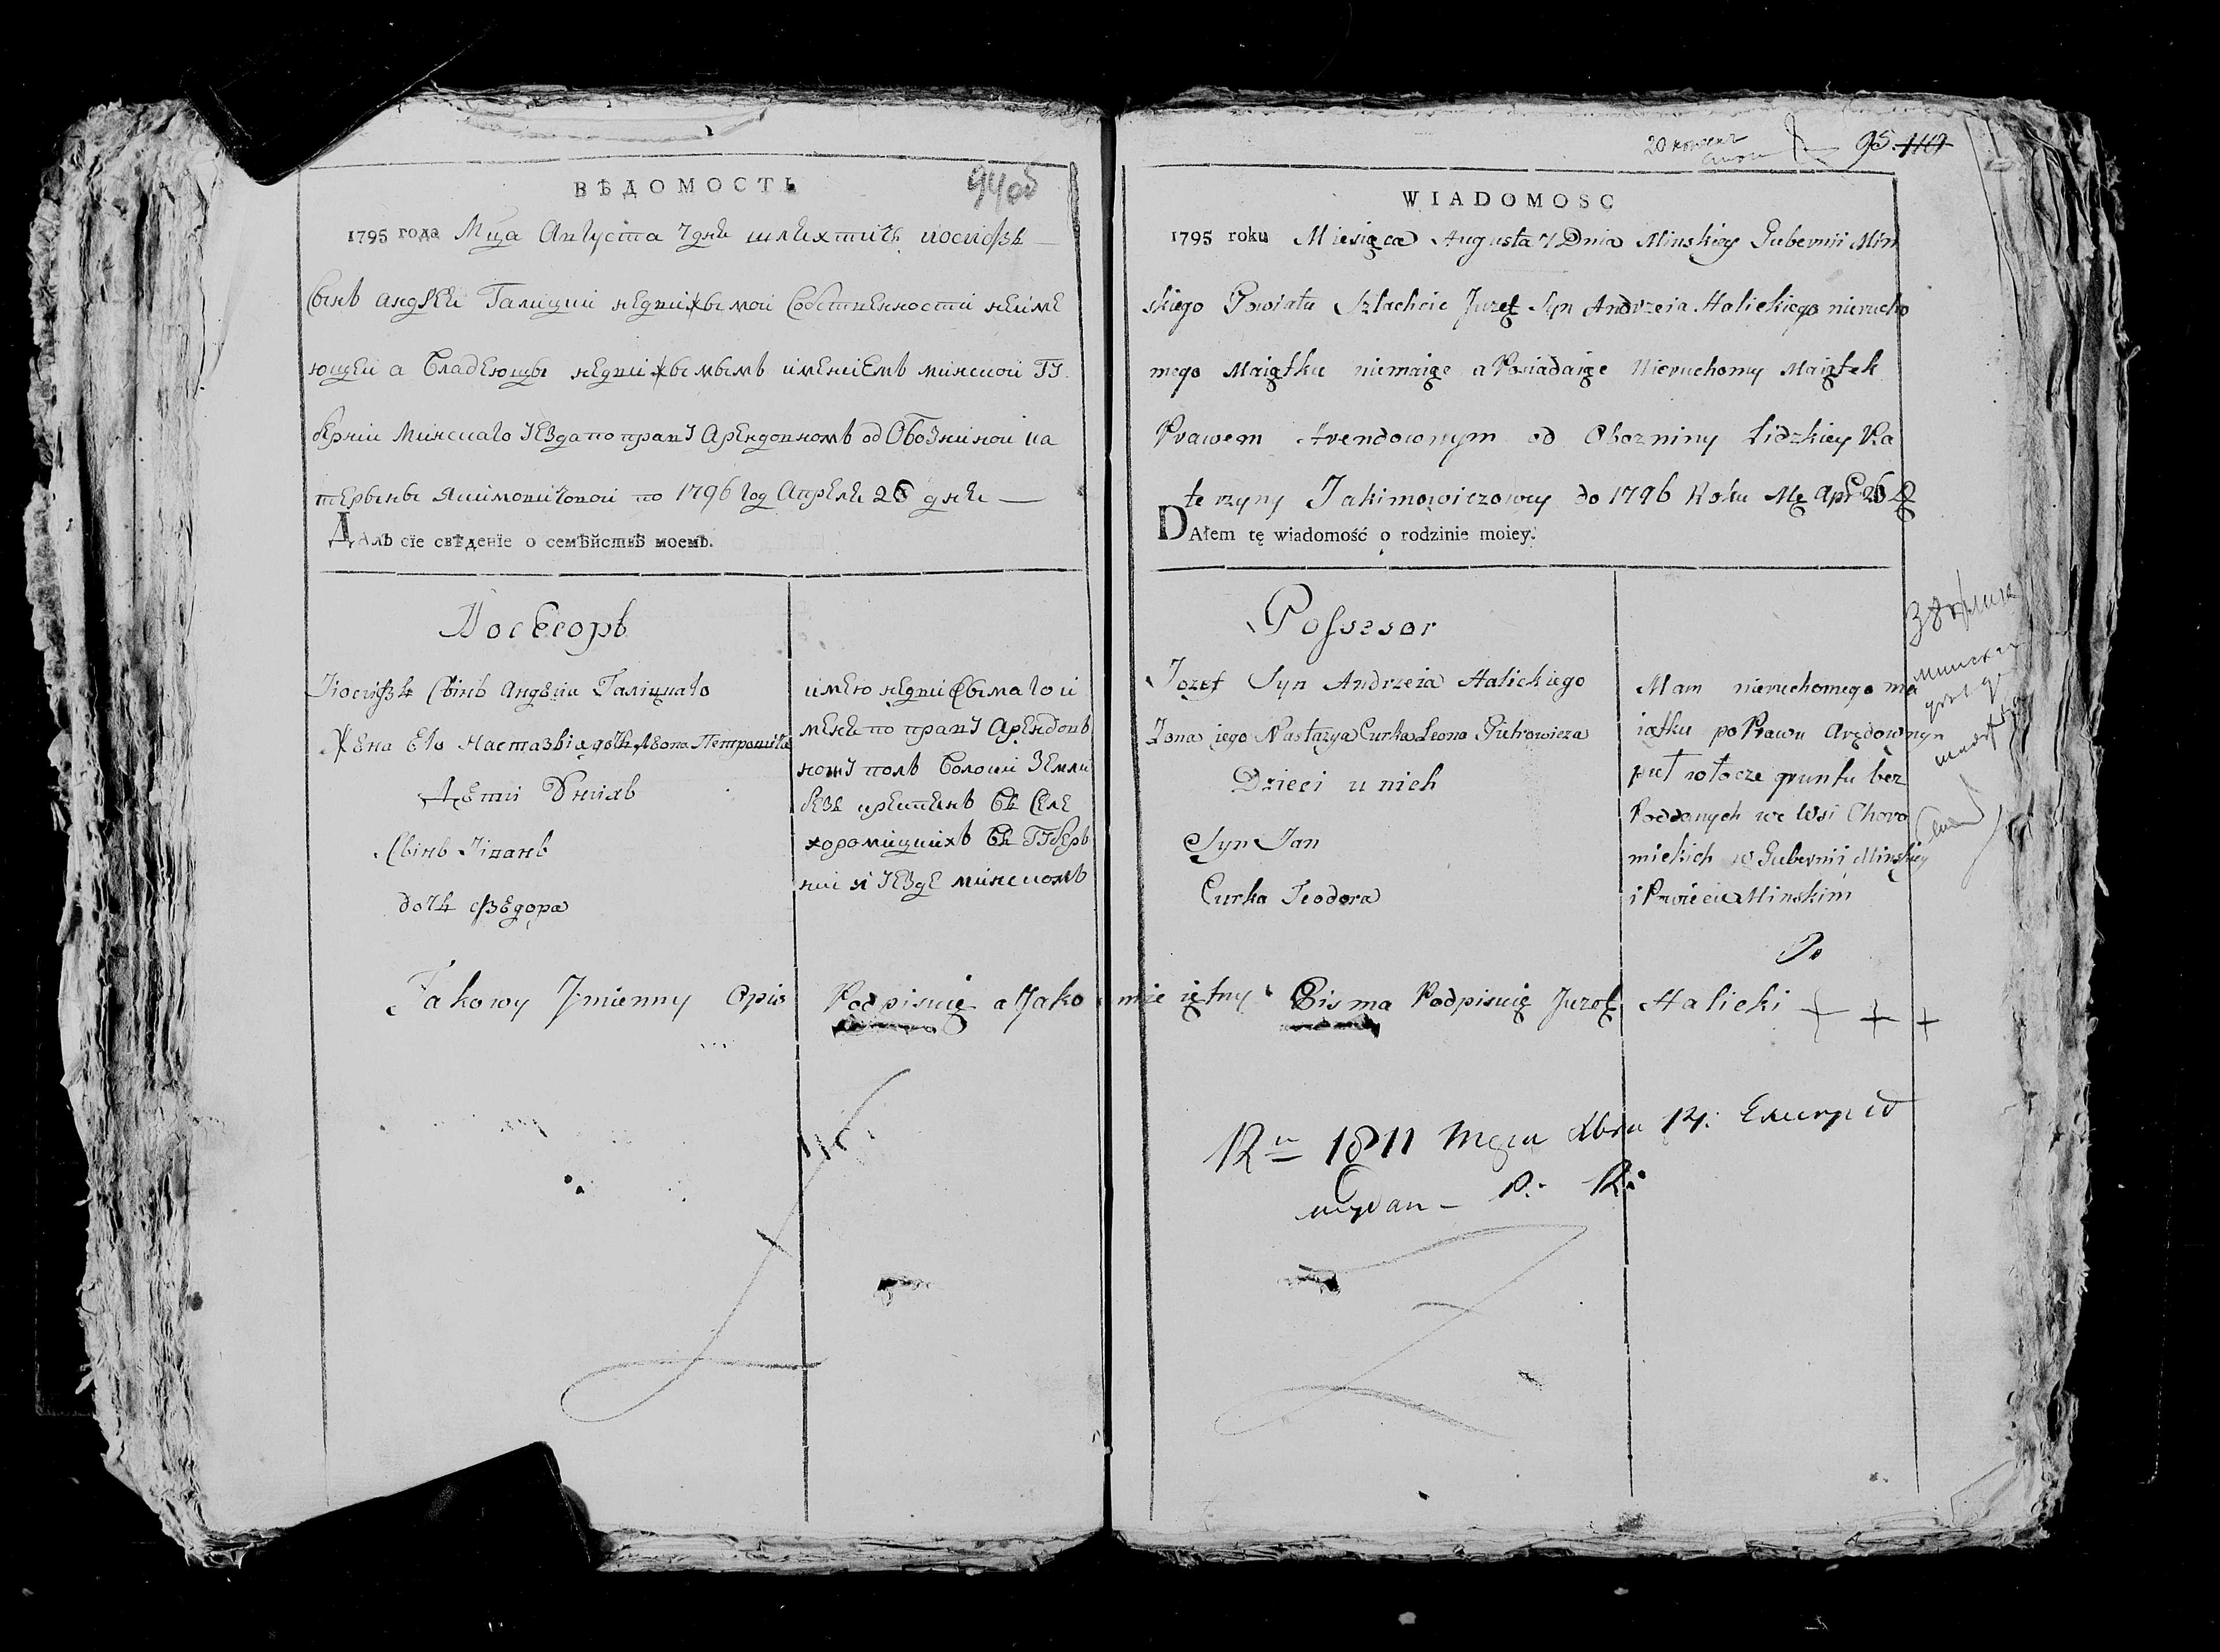 94об
ВѢДОМОСТЬ
1795 года Мца Августа 7 дня шляхтичъ иосифъ
Сынъ андрей Галицкий недвижымой Собственности неиме
ющей а Владеющы недвижымымъ имениемъ минской Гу
берніи Минскаго уезда по праву Арендовномъ од Обознинои ка
терыны Якимовичовой по 1796 год Апреля 26 дня
Далъ сіе свѣденіе о семѣйствѣ моемъ.
Посесоръ
Іосифъ Сынъ андрѣи Галицкаго
Жена Его Настазыя дочь Леона Петровича
Дети Уних
Сынъ Іванъ
дочь Федора
имею недвижымаго и
меня по праву Арендовъ
ному полъ Волоки Земли
безъ крепенъ Въ Селе
хоромицкихъ Въ Губеръ
нии и уезде минскомъ
20 копеек
95 110
WIADOMOSC
1795 roku Miesiąca Augusta 7 Dnia Minskiey Gubernii Min
skiego Powiatu Szlachcic Juzef Syn Andrzeia Halickiego nierucho
mego Maiątku niemaiąc a Posiadaiąc Nieruchomy Maiątek
Prawem Arendownym od Obozniny Lidzkiey Ka
terzyny Jakimowiczowey do 1796 Roku Mc Apr 26 D
DAłem tę wiadomość o rodzinie moiey.
Possesor
Jozef Syn Andrzeia Halickiego
Zona iego Nastazya Curka Leona Pietrowicza
Dzieci u nich
Syn Jan
Curka Teodora
Mam nieruchomego ma
iątku po Prawu Arędownym
puł włocze gruntu bez
Poddanych we Wsi Choro
mickich w Gubernii Minskiey
i Powiecie Minskim
Takowy Jmienny Opis Podpisuię a Jako nie iętny Pisma Podpisuię Juzef Halicki + + +
1811 14: Extrakt
wydan